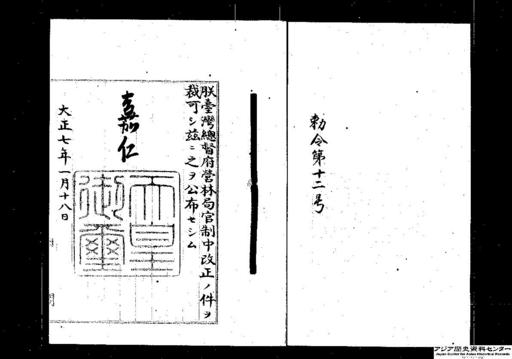 勅令第十二号
朕臺灣總督府營林局官制中改正ノ件ヲ
裁可シ茲ニ之ヲ公布セシム
嘉仁
天皇
御璽
大正七年一月十八日
アジア歴史資料センター
Japan Center for Asian Historical Records